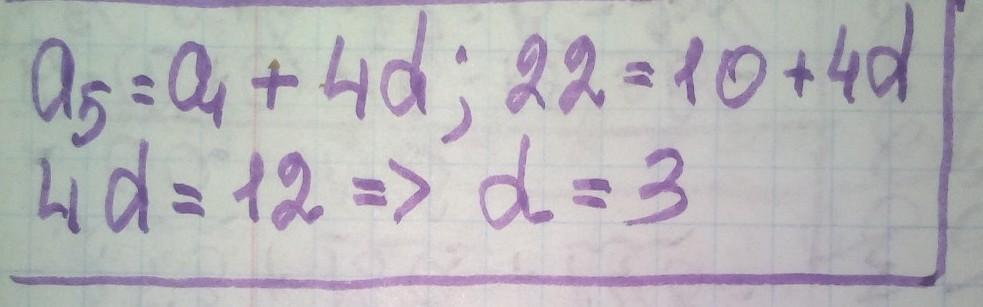 a₅ = a₁ + 4d; 22 = 10 + 4d
4d = 12 => d = 3